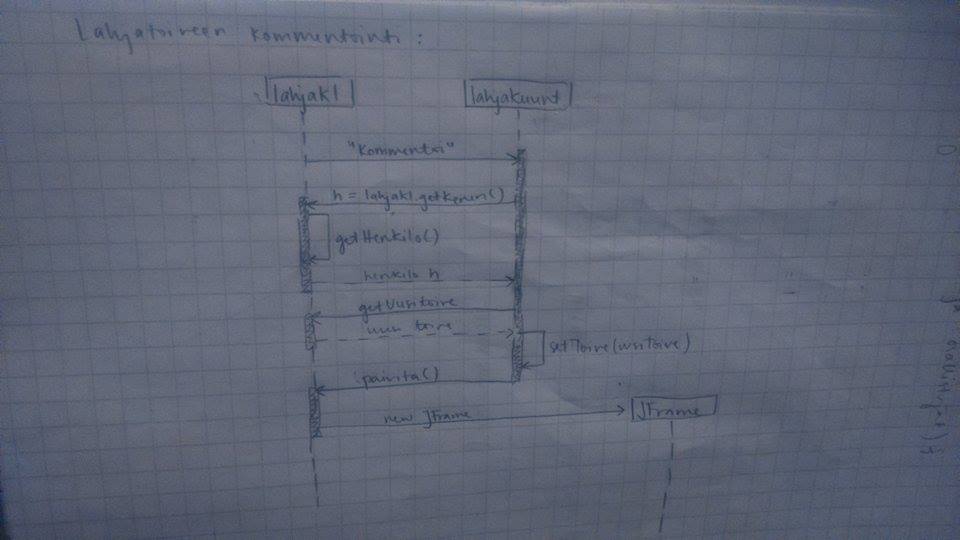 Lahjatoiveen kommentointi:
lahjakl
lahjakuunt
"Kommentoi"
h = lahjakl.getKenen()
getHenkilo()
henkilo h
getUusitoive
uusi toive
setToive(uusitoive)
paivita()
new JFrame
JFrame